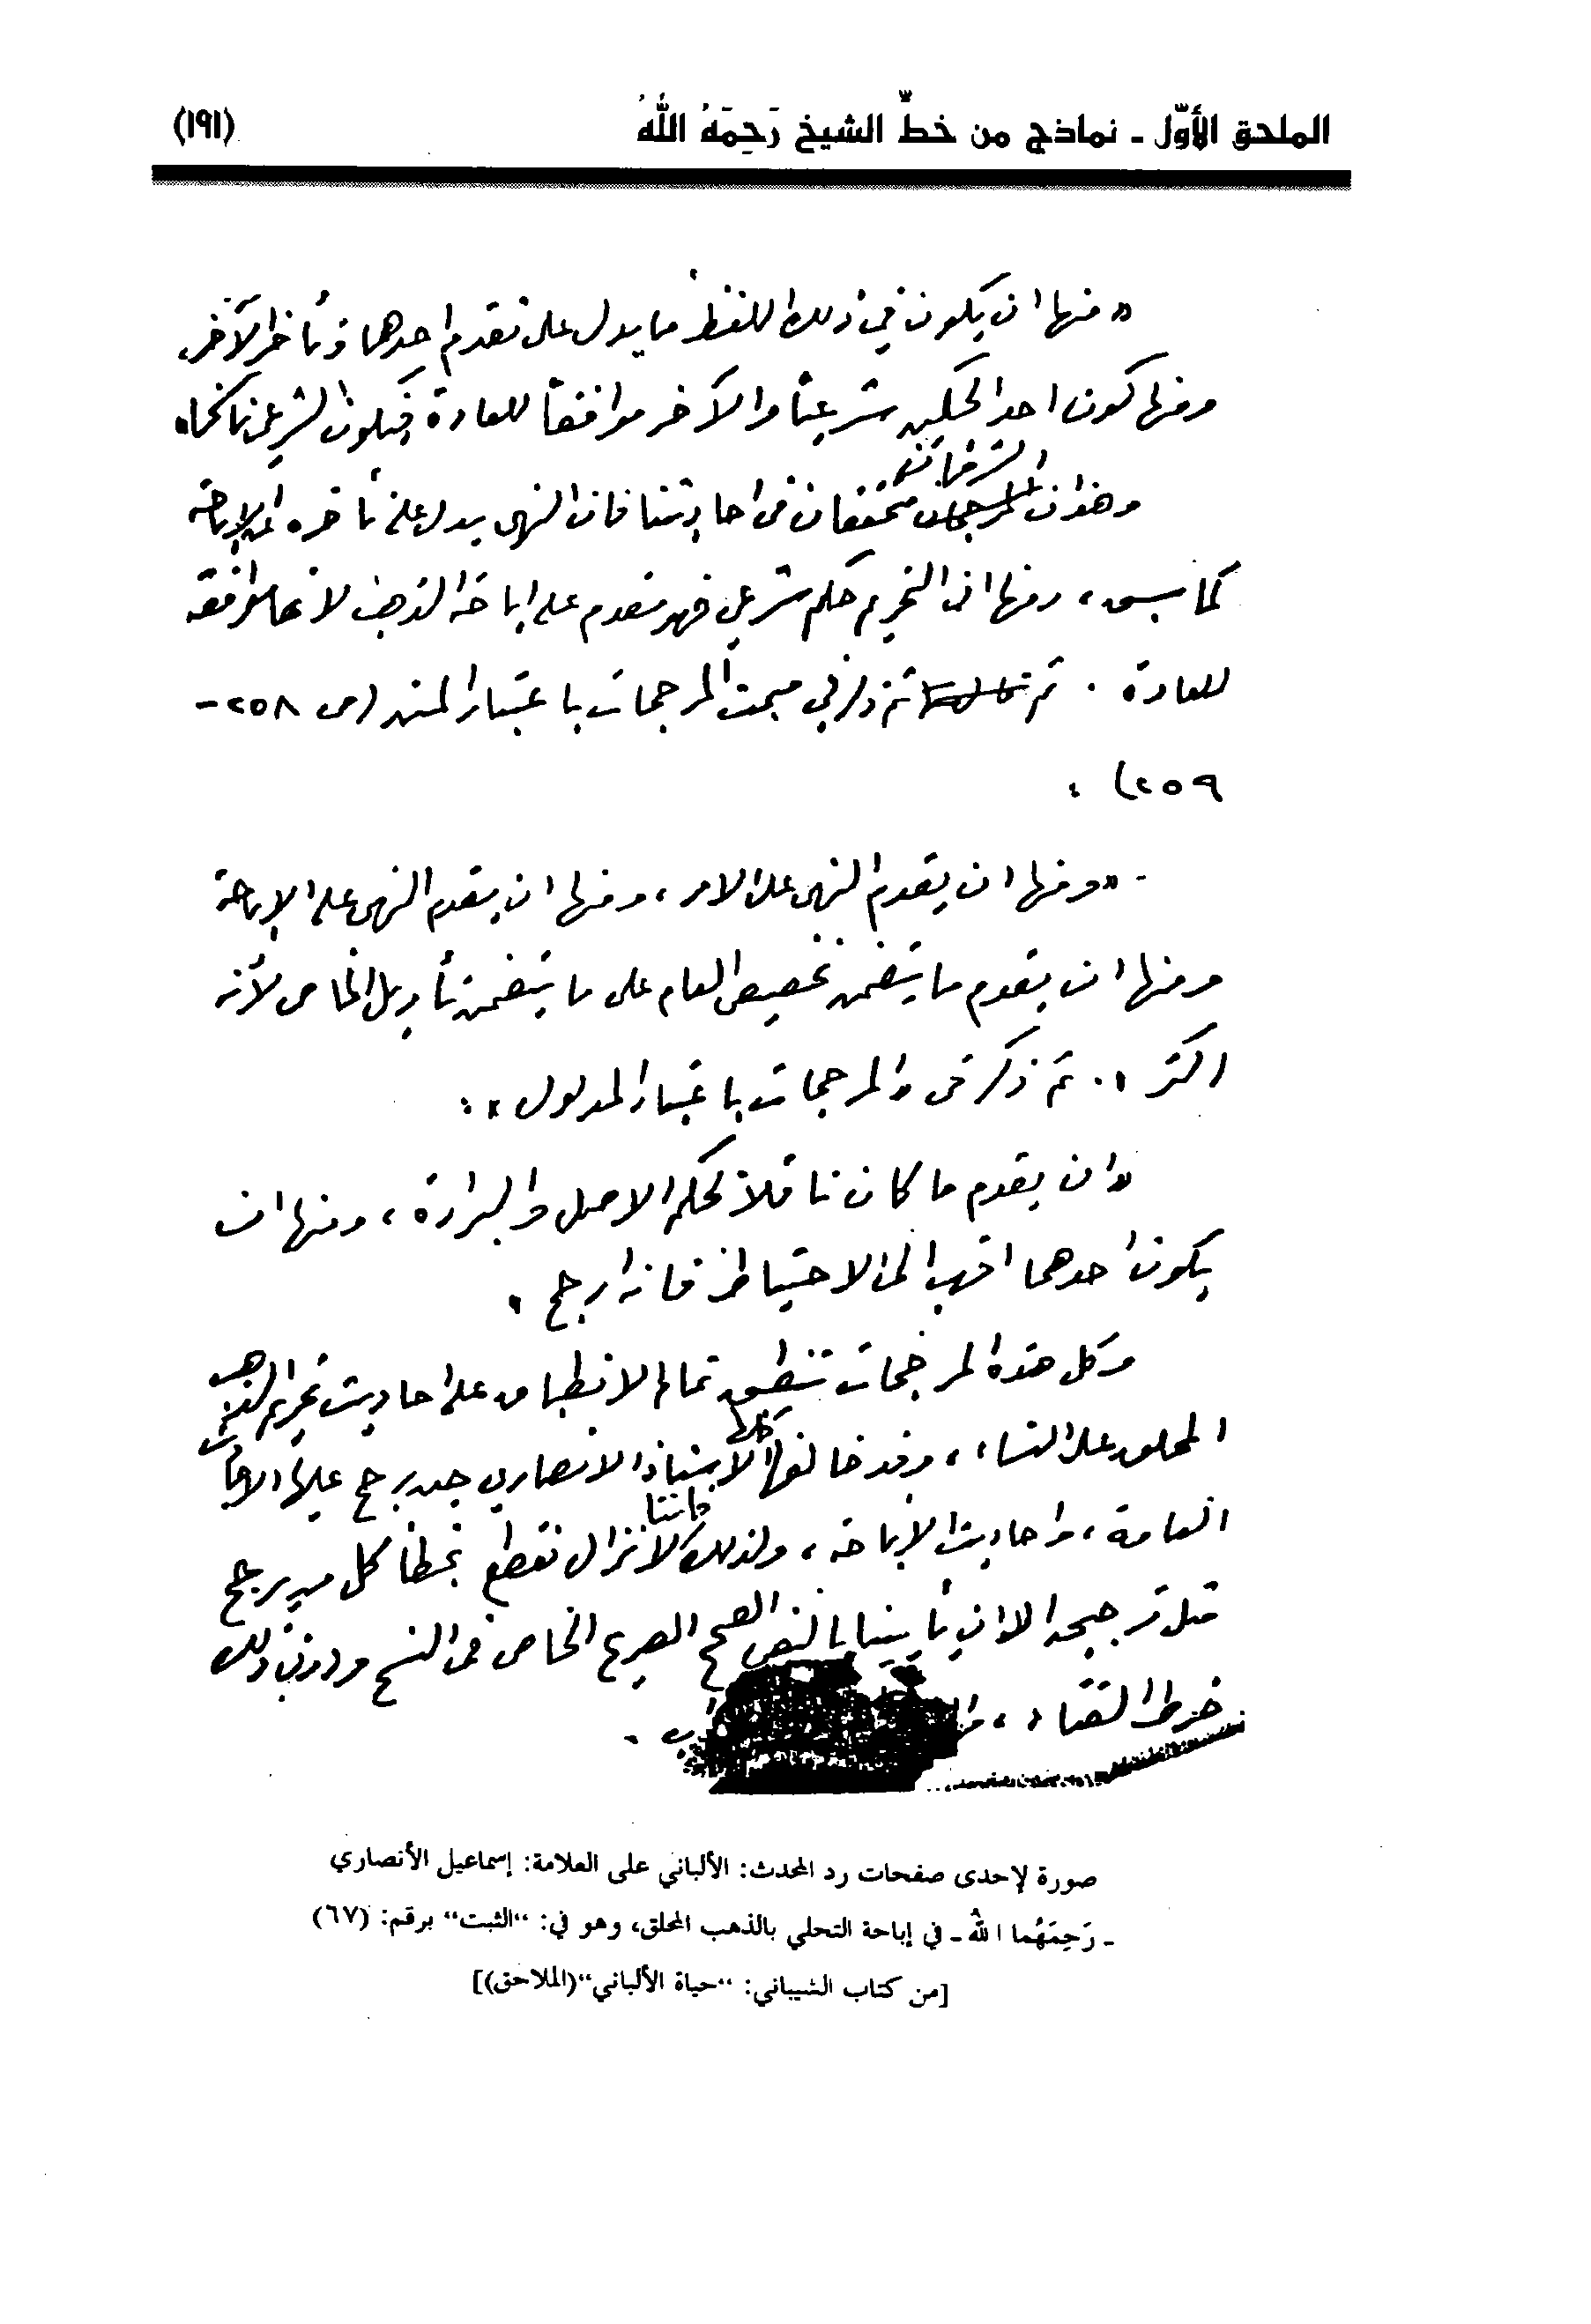 الملحق الأوّل ـ نماذج من خطِّ الشيخ رَحِمَهُ اللهُ (١٩١)
« منها ان يكون في ذلك اللفظ ما يدل على تقدم احدهما وتأخر الآخر.
ومنها كون احد الحكمين شرعياً والآخر موافقاً للعادة فيكون الشرعي ناسخاً »
وهذان متحققان في احاديثنا فان النهي يدل على تأخره عن الإباحة
كما سبق، ومنها ان التحريم حكم شرعي فهو مقدم على إباحة الذهب لانها موافقة
للعادة . ثم ذكر في مبحث المرجحات باعتبار المتن (ص ٢٥٨-
٢٥٩) :
- « ومنها ان يقدم النهي على الامر، ومنها ان يقدم النهي على الإباحة
ومنها ان يقدم ما يتضمن تخصيص العام على ما يتضمن تأويل الخاص لأنه
اكثر ». ثم ذكر في « المرجحات باعتبار المدلول » :
« ان يقدم ما كان ناقلاً لحكم الاصل والبراءة، ومنها ان
يكون احدهما اقرب الى الاحتياط فانه ارجح »
وكل هذه المرجحات تنطبق تمام الانطباق على احاديث تحريم الذهب
المحلق على النساء، وقد خالفها كلها الأستاذ الانصاري حين رجح عليها الآيات
العامة، واحاديث الإباحة، ولذلك فاننا لا نزال نقطع بخطأ كل من يرجح
مثل ترجيحه الا ان يأتينا بالنص الصحيح الصريح الخاص في النسخ ودون ذلك
خرط القتاد،
صورة لإحدى صفحات رد المحدث: الألباني على العلامة: إسماعيل الأنصاري
ـ رَحِمَهُما اللهُ ـ في إباحة التحلي بالذهب المحلق، وهو في: "الثبت" برقم: (٦٧)
[من كتاب الشيباني: "حياة الألباني"(الملاحق)]